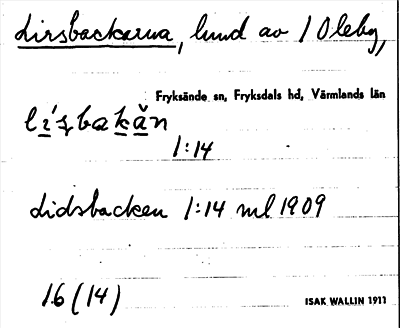 Lirsbackarna, lund av 1 Oleby,
Fryksände sn, Fryksdals hd, Värmlands län
1:14
Lidsbacken 1:14 ml 1909
16 (14)
ISAK WALLIN 1911